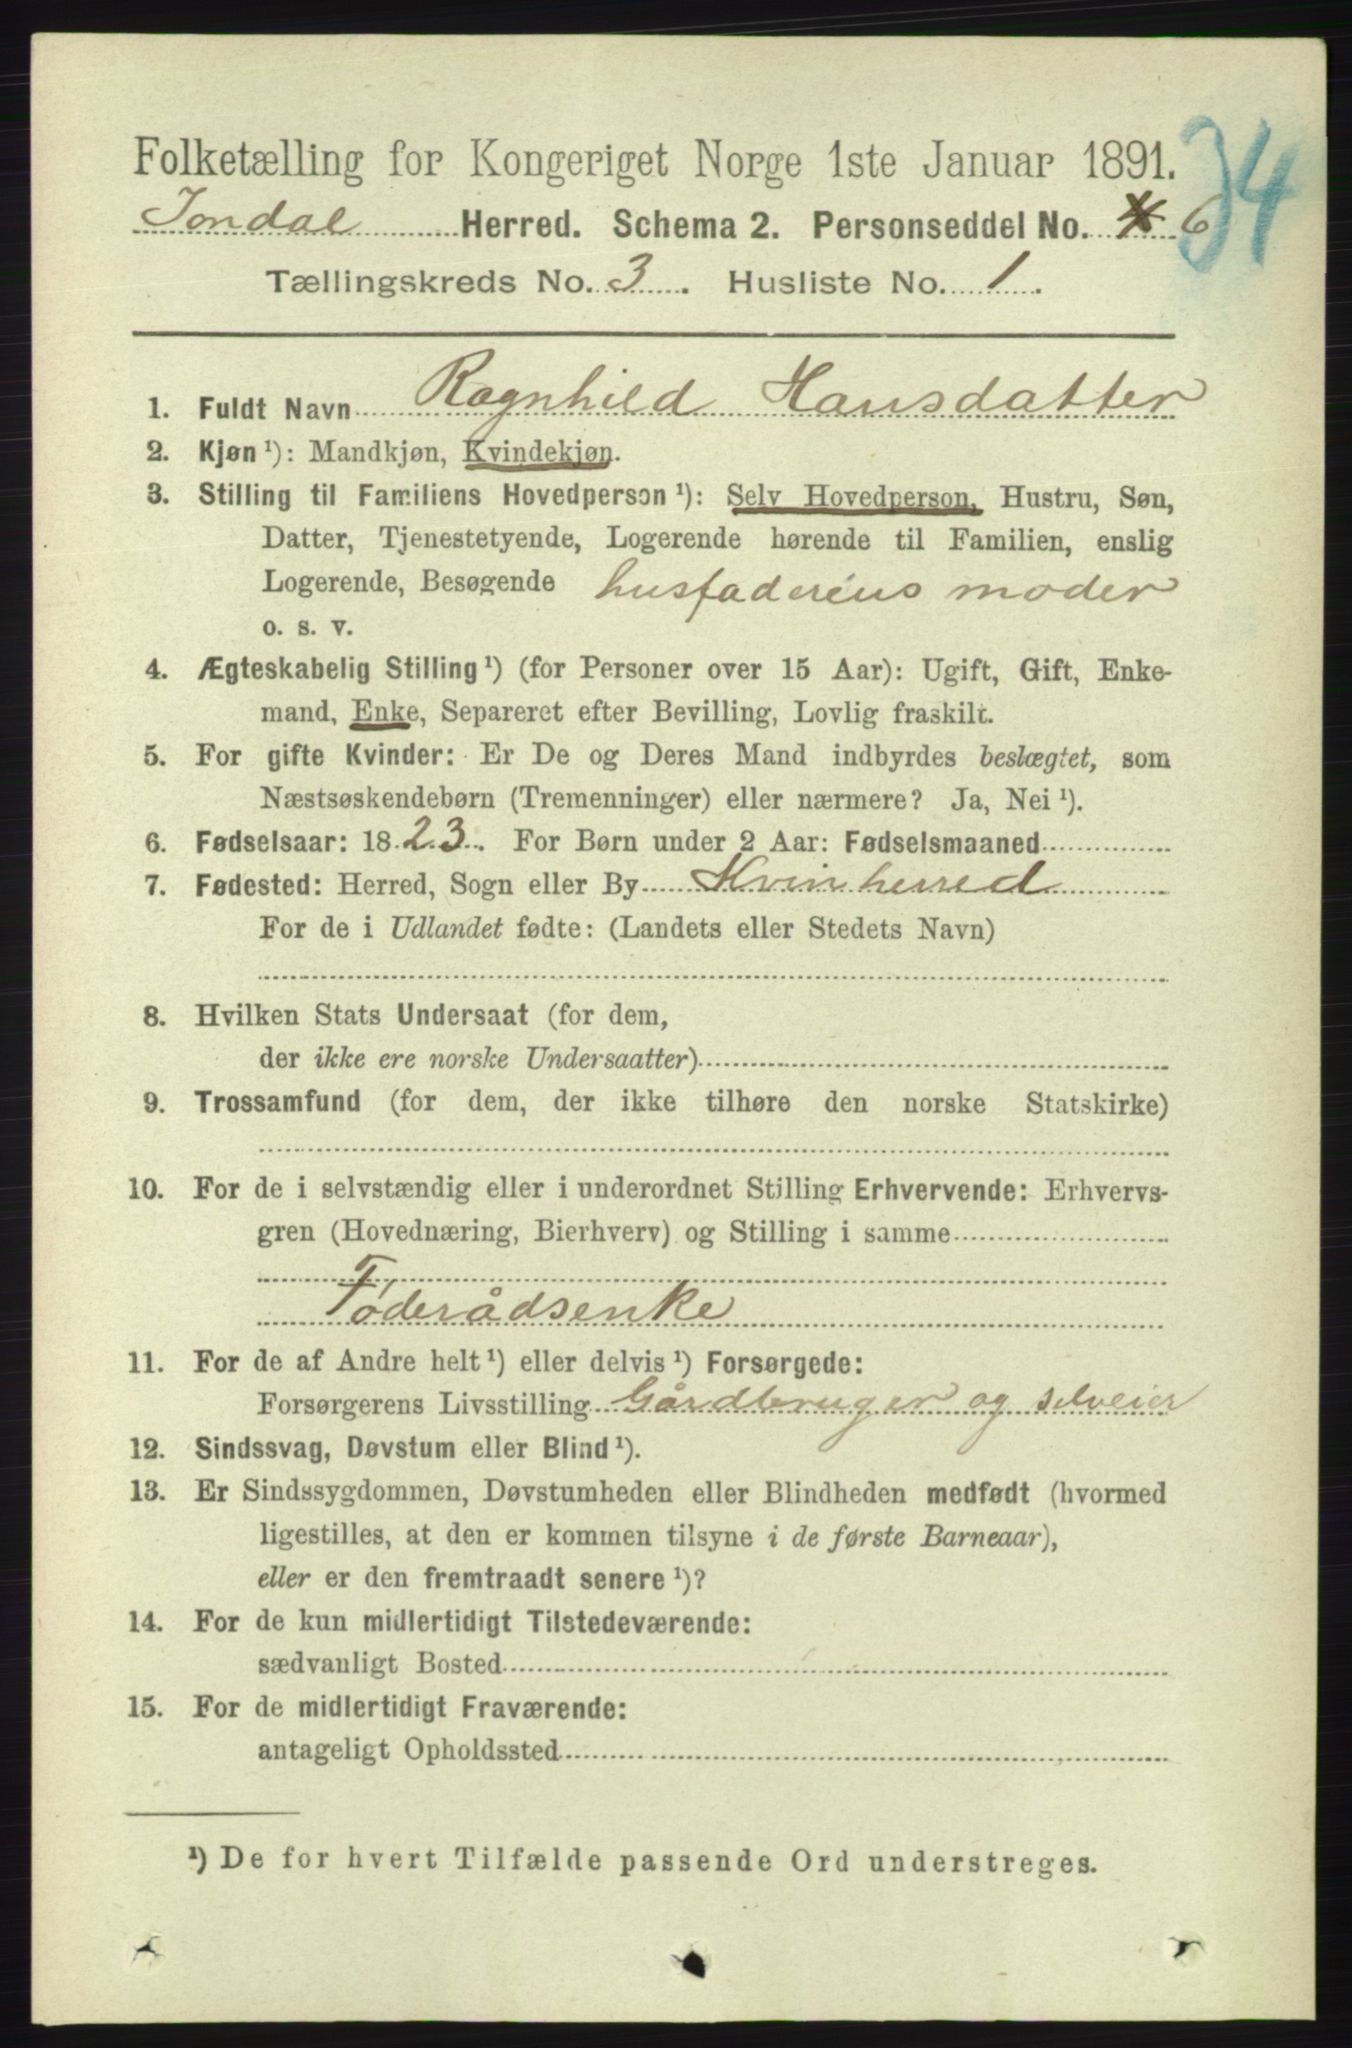 34
Folketælling for Kongeriget Norge 1ste Januar 1891.
Jondal Herred. Schema 2. Personseddel No. 6
Tællingskreds No. 3. Husliste No. 1.
1. Fuldt Navn Ragnhild Hansdatter
2. Kjøn ¹): Mandkjøn, Kvindekjøn.
3. Stilling til Familiens Hovedperson ¹): Selv Hovedperson, Hustru, Søn,
Datter, Tjenestetyende, Logerende hørende til Familien, enslig
Logerende, Besøgende husfaderens moder
o. s. v.
4. Ægteskabelig Stilling ¹) (for Personer over 15 Aar): Ugift, Gift, Enke-
mand, Enke, Separeret efter Bevilling, Lovlig fraskilt.
5. For gifte Kvinder: Er De og Deres Mand indbyrdes beslægtet, som
Næstsøskendebørn (Tremenninger) eller nærmere? Ja, Nei ¹).
6. Fødselsaar: 1823. For Børn under 2 Aar: Fødselsmaaned
7. Fødested: Herred, Sogn eller By Kvinherred
For de i Udlandet fødte: (Landets eller Stedets Navn)
8. Hvilken Stats Undersaat (for dem,
der ikke ere norske Undersaatter)
9. Trossamfund (for dem, der ikke tilhøre den norske Statskirke)
10. For de i selvstændig eller i underordnet Stilling Erhvervende: Erhvervs-
gren (Hovednæring, Bierhverv) og Stilling i samme
Føderådsenke
11. For de af Andre helt ¹) eller delvis ¹) Forsørgede:
Forsørgerens Livsstilling Gårdbruger og selveier
12. Sindssvag, Døvstum eller Blind ¹).
13. Er Sindssygdommen, Døvstumheden eller Blindheden medfødt (hvormed
ligestilles, at den er kommen tilsyne i de første Barneaar),
eller er den fremtraadt senere ¹)?
14. For de kun midlertidigt Tilstedeværende:
sædvanligt Bosted
15. For de midlertidigt Fraværende:
antageligt Opholdssted
¹) De for hvert Tilfælde passende Ord understreges.